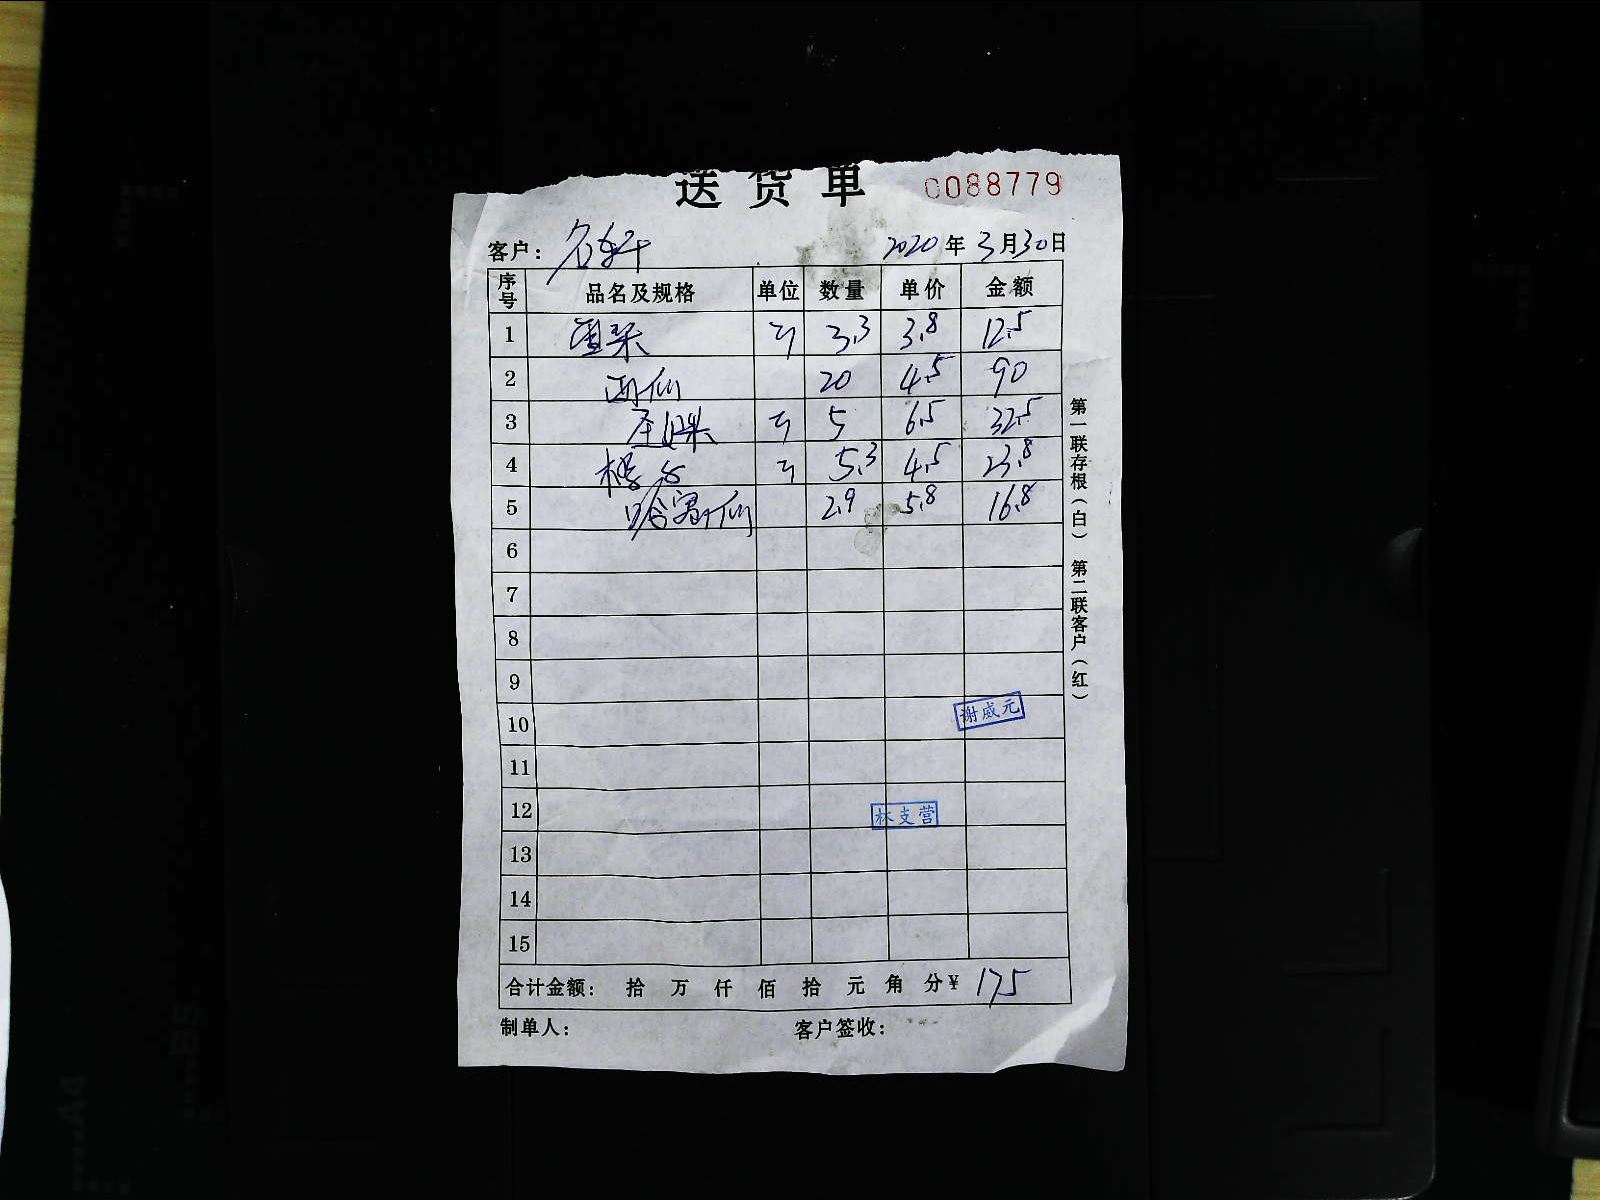 送货单 0088779
客户: 2020年3月30日
序号 品名及规格 单位 数量 单价 金额
1 3.3 3.8 12.5
2 20 4.5 90
3 圣女果 5 6.5 32.5
4 5.3 4.5 23.8
5 2.9 5.8 16.8
6
7
8
9
10 谢威元
11
12 林支营
13
14
15
合计金额: 拾 万 仟 佰 拾 元 角 分¥ 175
制单人: 客户签收:
第一联存根(白) 第二联客户(红)
A4
B5